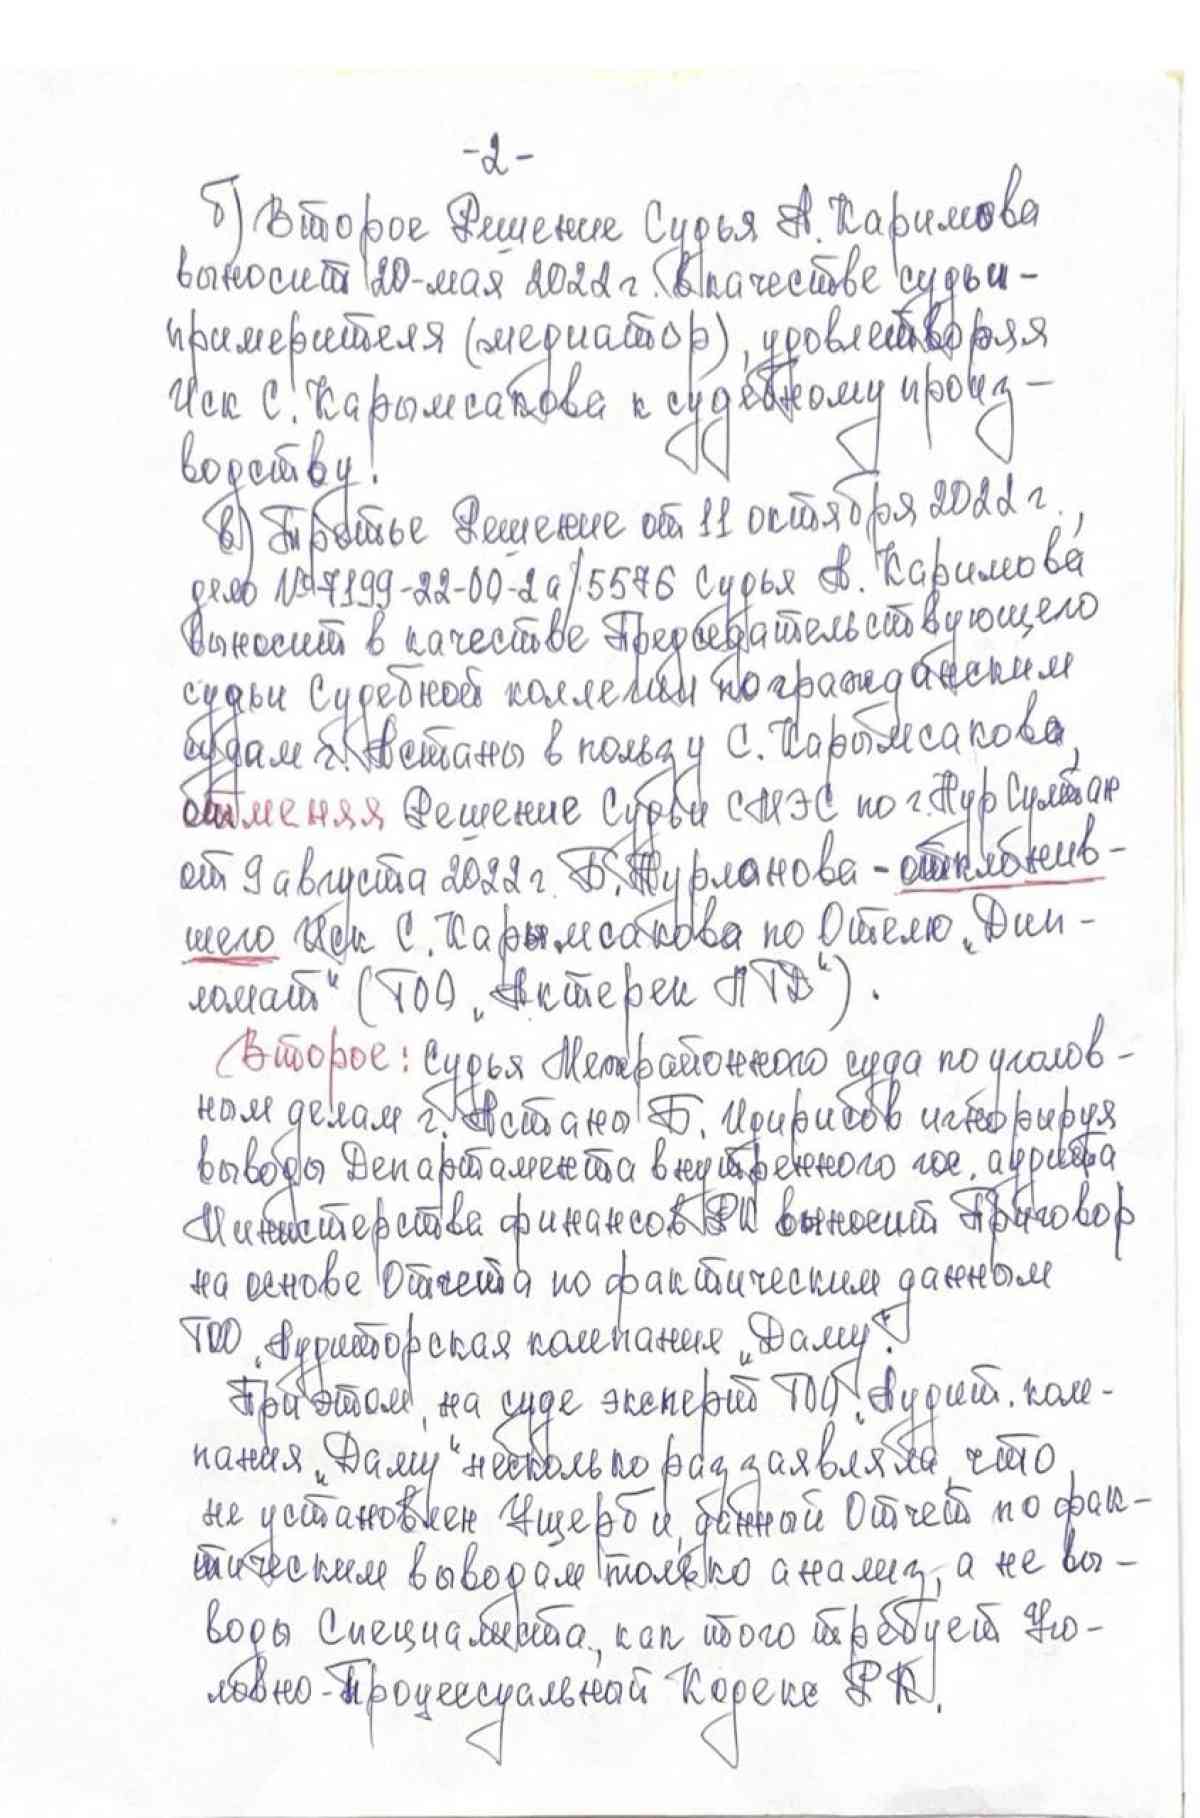 -2-
б) Второе Решение Судья А. Каримова
выносит 20-мая 2022 г. в качестве судьи-
примерителя (медиатор), удовлетворяя
Иск С. Карымсакова к судебному произ-
водству!
в) Третье Решение от 11 октября 2022 г.,
дело №7199-22-00-2а/5576 Судья А. Каримова
выносит в качестве Председательствующего
судьи Судебной коллегии по гражданским
судам г. Астаны в пользу С. Карымсакова,
отменяя Решение Судьи СМЭС по г. Нур Султан
от 9 августа 2022 г. Б. Нурланова - отклонив-
шего Иск С. Карымсакова по Отелю „Дип-
ломат" (ТОО „Актерек ЛТД").
Второе: Судья Межрайонного суда по уголов-
ным делам г. Астаны Б. Идирисов игнорируя
выводы Департамента внутренного гос. аудита
Министерства финансов РК выносит Приговор
на основе Отчета по фактическим данным
ТОО „Аудиторская компания „Даму".
При этом, на суде эксперт ТОО „Аудит. ком-
пания „Даму" несколько раз заявляла, что
не установлен Ущерб и, данный Отчет по фак-
тическим выводам только анализ, а не вы-
воды Специалиста, как того требует Уго-
ловно-Процессуальный Кодекс РК.